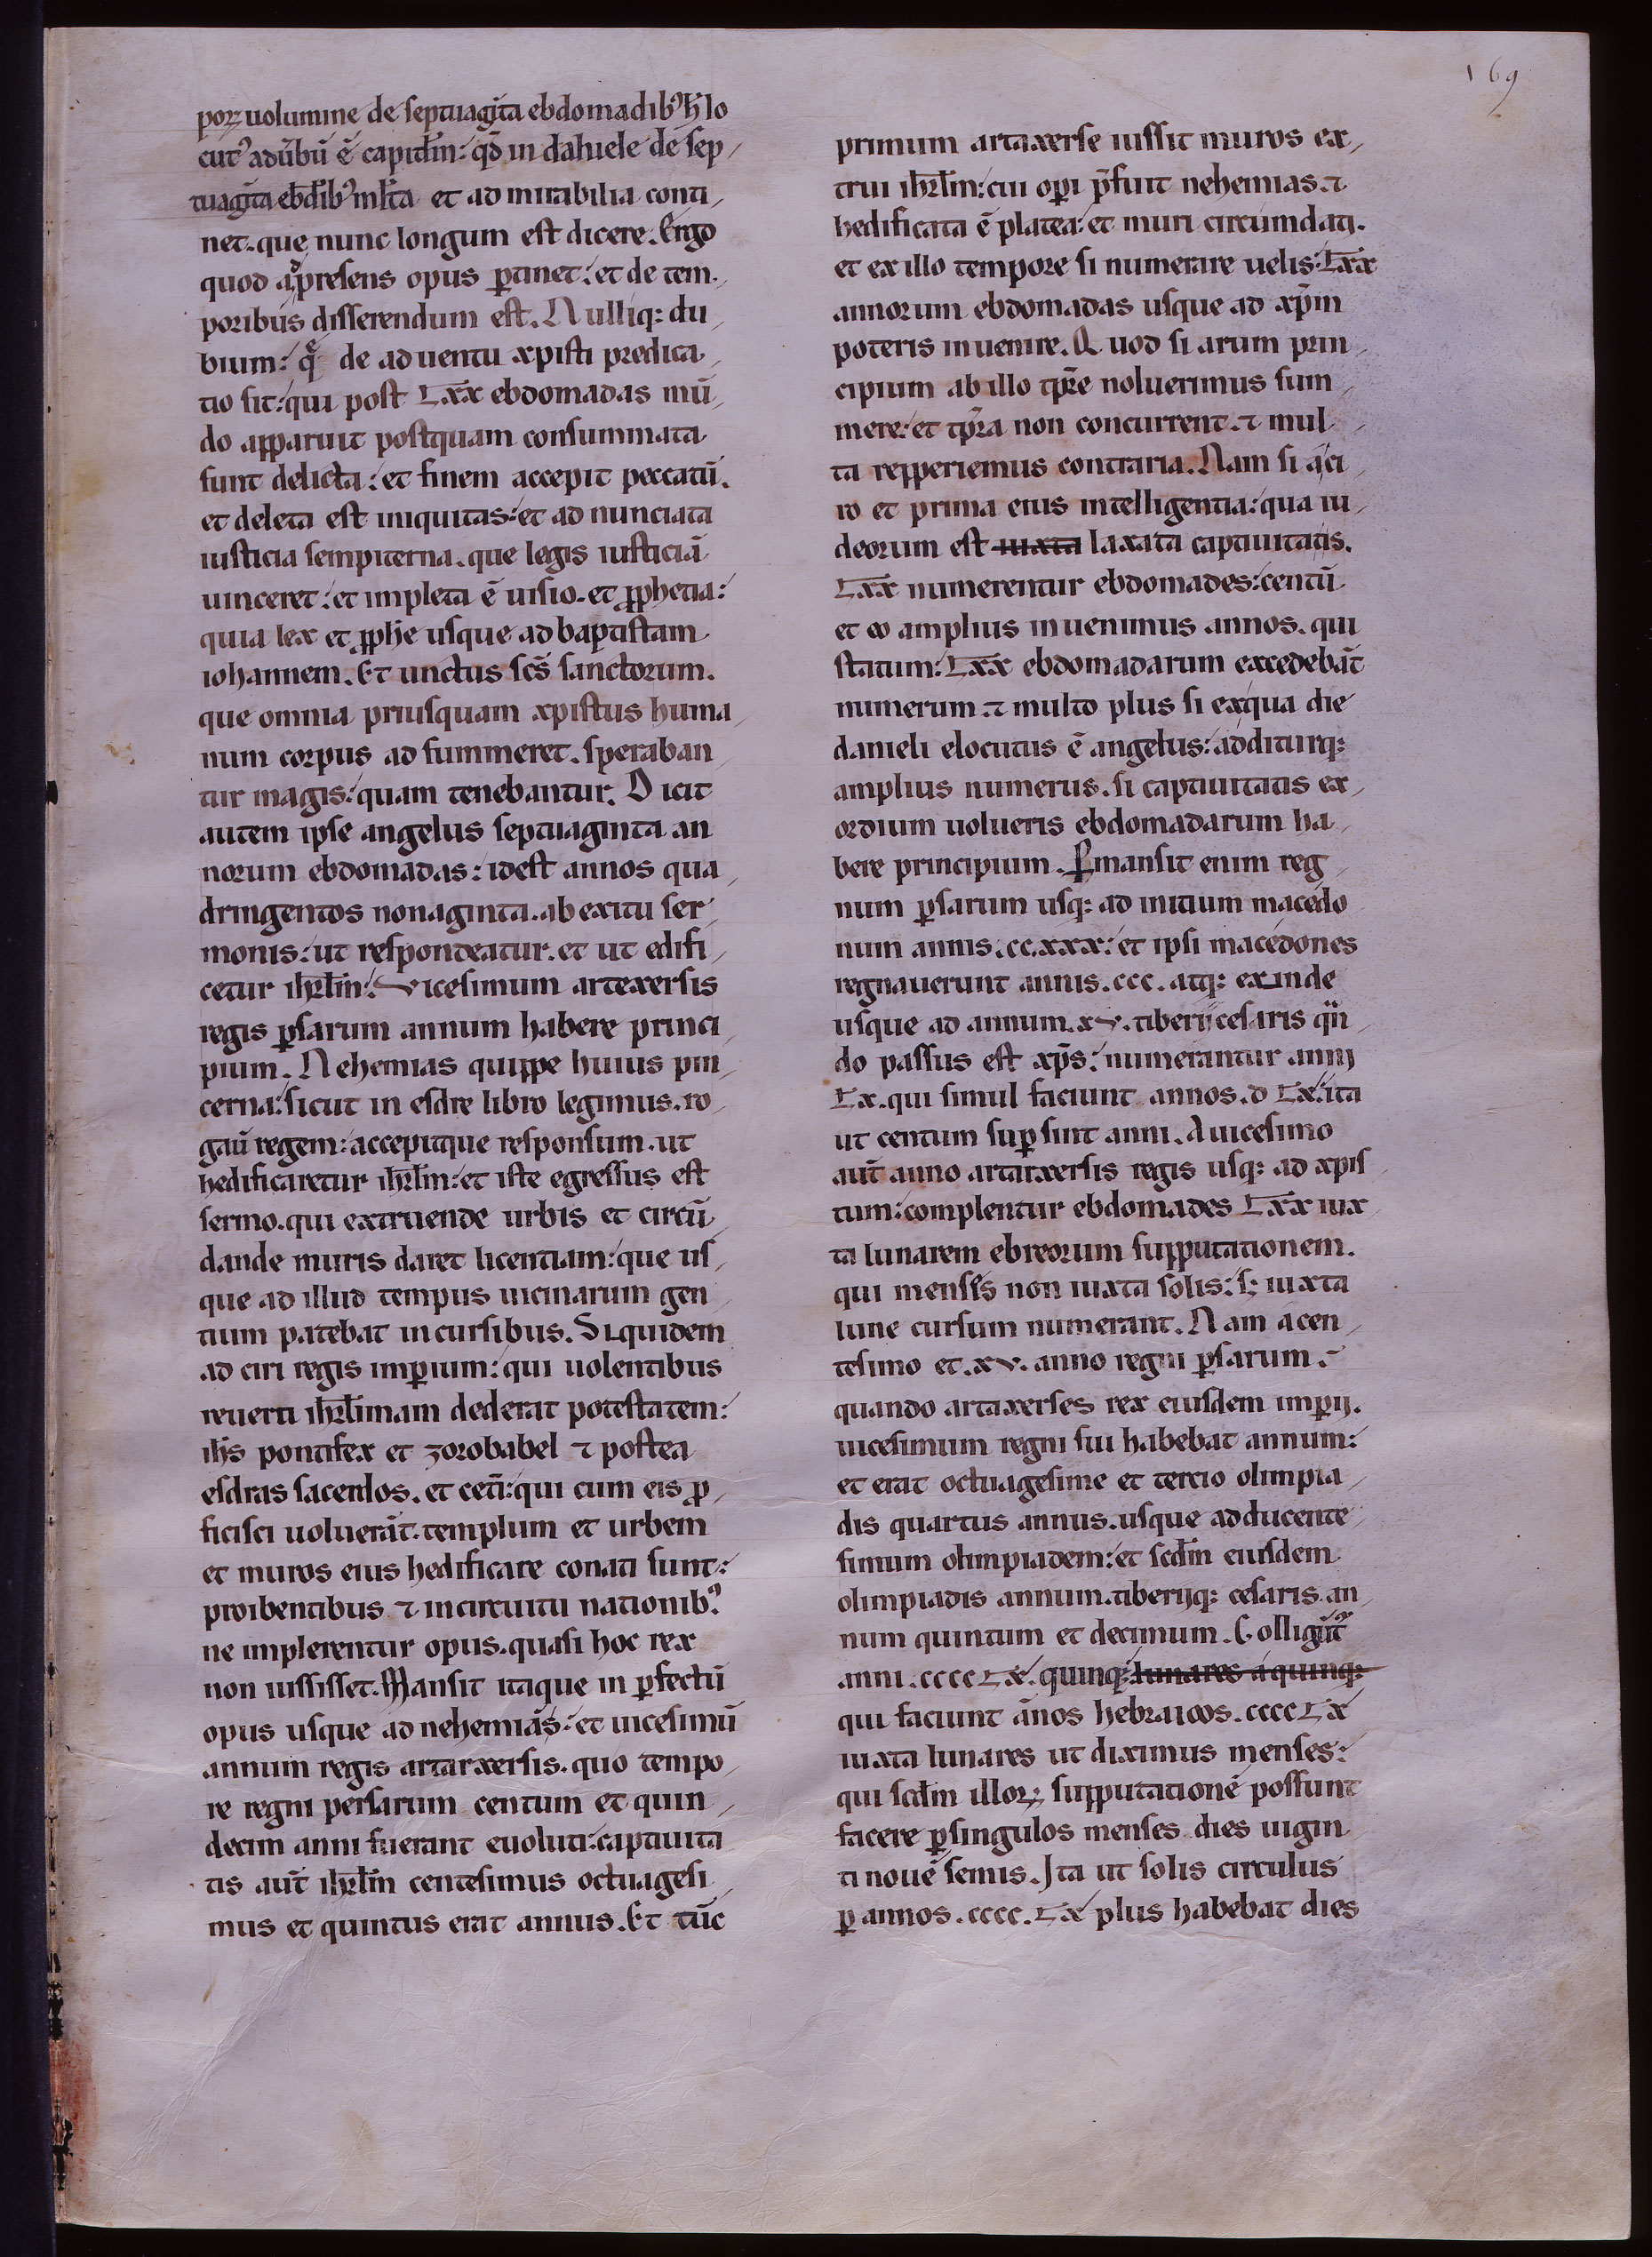 169
porꝝ uolumine de septuaginta ebdomadibꝰ h̄ lo
cutꝰ adūbū ē capitłm: qđ in dahiele de sep
tuagīta ebđibꝰ mlta et ad mirabilia conti
net. que nunc longum est dicere. Ergo
quod ad presens opus ꝑtinet: et de tem
poribus disserendum est. Nulliq; du
bium: qđ de aduentu xpisti predica
tio sit: qui post Lxx ebdomadas mū
do apparuit postquam consummata
sunt delicta: et finem accepit peccatū.
et deleta est iniquitas: et ad nunciata
iusticia sempiterna. que legis iusticiā
uinceret: et impleta ē uisio. et ꝓphetia:
quia lex et ꝓphe usque ad baptistam
iohannem. Et unctus scs̄ sanctorum.
que omnia priusquam xpistus huma
num corpus ad summeret. speraban
tur magis: quam tenebantur. Dicit
autem ipse angelus septuaginta an
norum ebdomadas: idest annos qua
dringentos nonaginta. ab exitu ser
monis: ut respondeatur. et ut edifi
cetur ihrłm: Vicesimum artexersis
regis ꝑsarum annum habere princi
pium. Nehemias quippe huius pin
cerna: sicut in esdre libro legimus. ro
gaū regem: accepitque responsum. ut
hedificaretur ihrłm: et iste egressus est
sermo. qui extruende urbis et circū
dande muris daret licentiam: que us
que ad illud tempus uicinarum gen
tium patebat incursibus. Siquidem
ad ciri regis imꝑium: qui uolentibus
reuerti ihrłimam dederat potestatem:
ihs̄ pontifex et zorobabel ⁊ postea
esdras sacerdos. et ceti: qui cum eis ꝓ
ficisci uoluerāt. templum et urbem
et muros eius hedificare conati sunt:
proibentibus ⁊ incircuitu nationibꝰ
ne implerentur opus. quasi hoc rex
non iussisset. Mansit itaque in ꝑfectū
opus usque ad nehemiās: et uicesimū
annum regis artarxersis. quo tempo
re regni persarum centum et quin
decim anni fuerant euoluti: captiuita
tis aut̄ ihrłm centesimus octuagesi
mus et quintus erat annus. Et tūc
primum artaxerse iussit muros ex
trui ihrłm: cui oꝑi p̄fuit nehemias. ⁊
hedificata ē platea: et muri circumdati.
et ex illo tempore si numerare uelis: Lxx
annorum ebdomadas usque ad xp̄m
poteris inuenire. Quod si arum prin
cipium ab illo tp̄re noluerimus sum
mere: et tp̄ra non concurrent. ⁊ mul
ta repperiemus contraria. Nam si a ci
ro et prima eius intelligentia: qua iu
deorum est iuxta laxata captiuitatis.
Lxx numerentur ebdomades: centū
et eo amplius inuenimus annos. qui
statum: Lxx ebdomadarum excedebāt
numerum ⁊ multo plus si exqua die
danieli elocutus ē angelus: additurq;
amplius numerus. si captiuitatis ex
ordium uolueris ebdomadarum ha
bere principium. Ꝑmansit enim reg
num ꝑsarum usq; ad initium macedo
num annis. cc.xxx: et ipsi macedones
regnauerunt annis. ccc. atq; exinde
usque ad annum. xv. tiberij cesaris qn̄
do passus est xp̄s: numerantur anni
Lx. qui simul faciunt annos. d Lx: ita
ut centum suꝑ sint anni. A uicesimo
aut̄ anno artarxersis regis usq; ad xpis
tum: complentur ebdomades Lxx iux
ta lunarem ebreorum supputationem.
qui menses non iuxta solis: s; iuxta
lune cursum numerant. Nam a cen
tesimo et. xv. anno regni ꝑsarum.
quando artaxerses rex eiusdem imꝑij.
uicesimum regni sui habebat annum:
et erat octuagesime et tercio olimpia
dis quartus annus. usque ad ducente
simum olimpiadem: et scđm eiusdem
olimpiadis annum. tiberijq; cesaris. an
num quintum et decimum. Colligūt
anni. cccc Lx. quinq; lunares a quinq;
qui faciunt ānos hebraicos. cccc Lx
iuxta lunares ut diximus menses:
qui scđm illorꝝ supputationē possunt
facere ꝑ singulos menses dies uigin
ti nouē semis. Ita ut solis circulus
ꝑ annos. cccc. Lx plus habebat dies